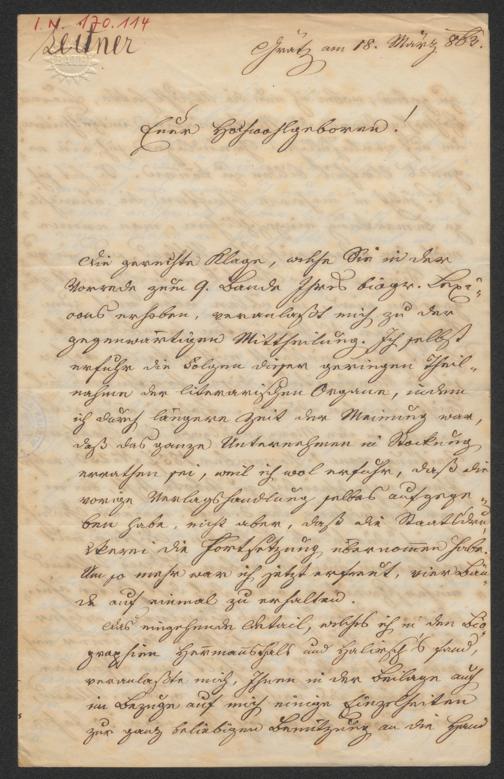 I. N. 170.114
Leitner
Grätz am 18. März 863.
Euer Hochwohlgeboren!
Die gerechte Klage, welche Sie in der
Vorrede zum 9. Bande Ihres biogr. Lexi-
cons erhoben, veranlaßt mich zu der
gegenwärtigen Mittheilung. Ich selbst
erfuhr die Folgen dieser geringen Theil-
nahme der literarischen Organe, indem
ich durch längere Zeit der Meinung war,
daß das ganze Unternehmen in Stockung
gerathen sei, weil ich wol erfuhr, daß die
vorige Verlagshandlung selbes aufgege-
ben habe, nicht aber, daß die Staatsdru-
ckerei die Fortsetzung übernommen habe.
Um so mehr war ich jetzt erfreut, vier Bän-
de auf einmal zu erhalten.
Das eingehende Detail, welches ich in den Bio-
graphien Hermannsthals und Halirsch's fand,
veranlaßte mich, Ihnen in der Beilage auch
in Bezuge auf mich einige Einzelheiten
zur ganz beliebigen Benützung an die Hand